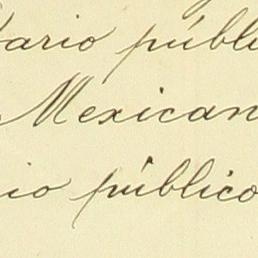 tario públi
Mexican
io público